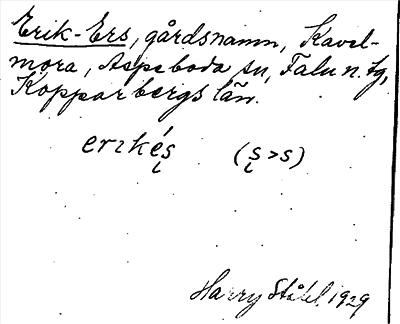 Erik-Ers, gårdsnamn, Kavel-
mora, Aspeboda sn, Falu n. tg,
Kopparbergs län.
erıkés̨ (s̨ > s)
Harry Ståhl 1929